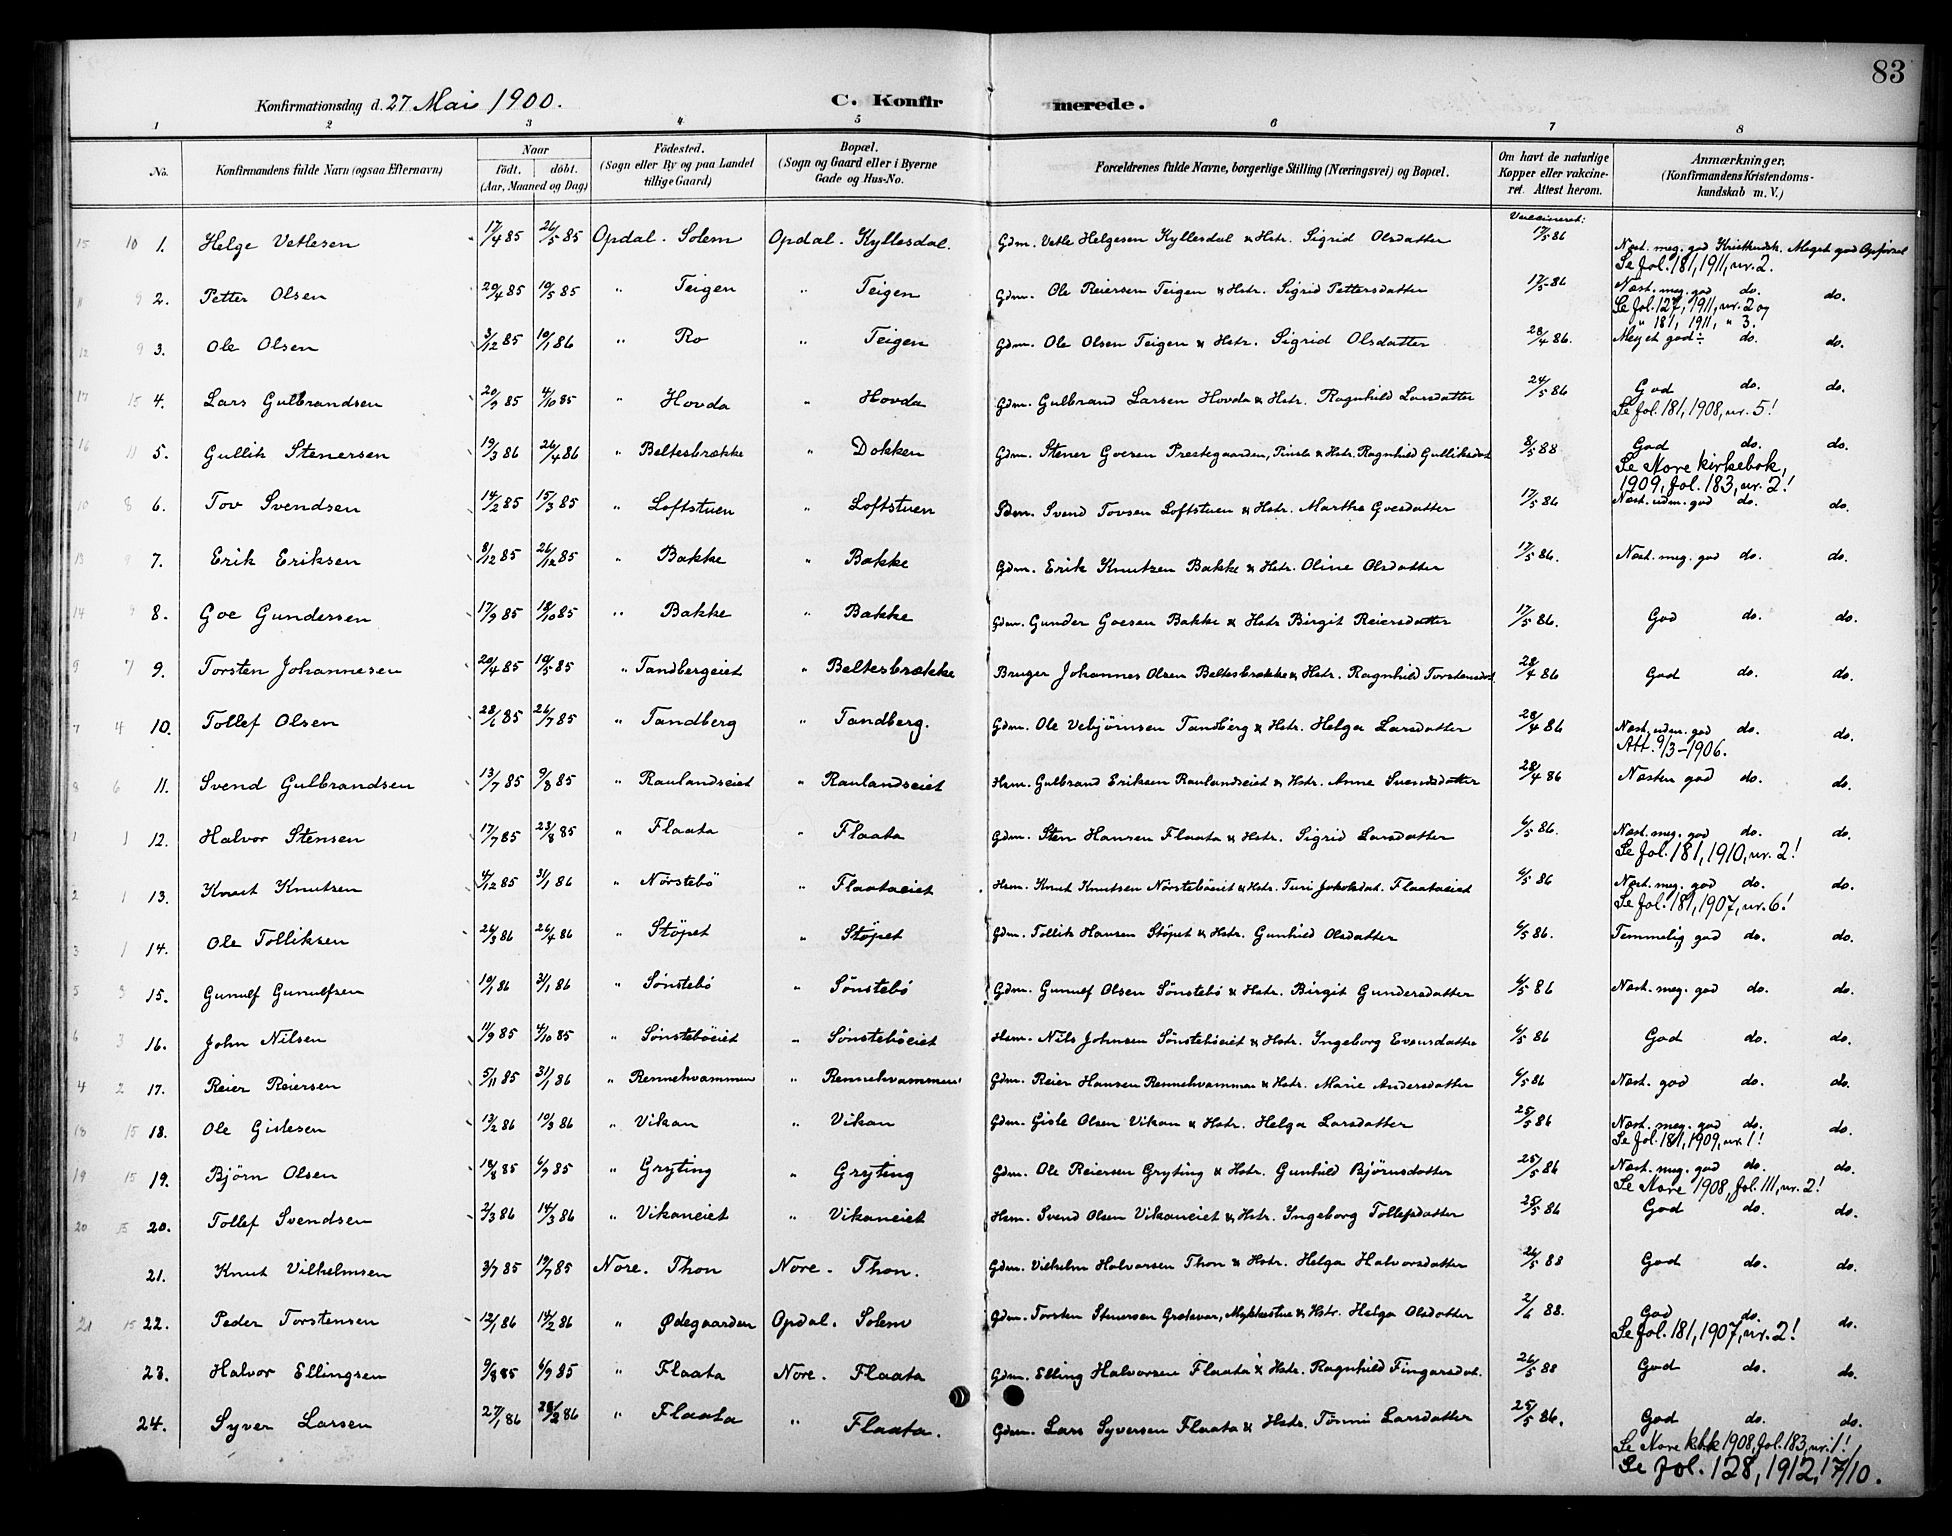 83
Konfirmationsdag d. 27 Mai 1900. C. Konfirmerede.
1 2 3 4 5 6 7 8
No. Konfirmandens fulde Navn (ogsaa Efternavn) Naar født. døbt. (Aar, Maaned og Dag) Fødested. (Sogn eller By og paa Landet tillige Gaard) Bopæl. (Sogn og Gaard eller i Byerne Gade og Hus-No. Forældrenes fulde Navne, borgerlige Stilling (Næringsvei) og Bopæl. Om havt de naturlige Kopper eller vakcineret. Attest herom. Anmærkninger. (Konfirmandens Kristendomskundskab m. V.)
Vaccineret:
15 10 1. Helge Vetlesen 17/4 85 26/5 85 Opdal. Solem Opdal. Kyllesdal. Gdm. Vetle Helgesen Kyllesdal & Hstr. Sigrid Olsdatter 17/5 86 Næst. meg. god Kristkundsk. Meget god Opførsel
Se fol. 181, 1911, nr. 2.
11 9 2. Petter Olsen 20/4 85 10/5 85 " Teigen " Teigen Gdm. Ole Reiersen Teigen & Hstr. Sigrid Pettersdatter 17/5 86 Næst. meg. god do. do.
Se fol. 127, 1911, nr. 2 og
" 181, 1911, " 3.
12 9 3. Ole Olsen 3/12 85 10/1 86 " Ro " Teigen Gdm. Ole Olsen Teigen & Hstr. Sigrid Olsdatter 28/4 86. Meget god÷ do. do.
17 15 4. Lars Gulbrandsen 20/9 85 4/10 85 " Hovda " Hovda Gdm. Gulbrand Larsen Hovda & Hstr. Ragnhild Larsdatter 24/5 86 God do. do.
Se fol. 181, 1908, nr. 5!
16 11 5. Gullik Stenersen 19/3 86 26/4 86 " Beltesbrække " Dokken Gdm. Stener Goesen Prestegaarden, Tinla & Hstr. Ragnhild Gulliksdot 8/5 88 God do. do.
Se Nore kirkebok,
1909, fol. 183, nr. 2!
10 8 6. Tov Svendsen 14/2 85 15/3 85 " Loftstuen " Loftstuen Gdm. Svend Tovsen Loftstuen & Hstr. Marthe Goesdatter 17/5 86 Næst. udm. god do. do.
13 9 7. Erik Eriksen 8/12 85 26/12 85 " Bakke " Bakke Gdm. Erik Knutsen Bakke & Hstr. Oline Olsdatter 17/5 86. Næst. meg. god do. do.
14 9 8. Goe Gundersen 17/9 85 18/10 85 " Bakke " Bakke Gdm. Gunder Goesen Bakke & Hstr Birgit Reiersdatter 17/5 86. God do. do.
9 7 9. Torsten Johannesen 20/4 85 10/5 85 " Tandbergeiet " Beltesbrække Bruger Johannes Olsen Beltesbrække & Hstr. Ragnhild Torstensdot. 28/4 86 God do. do.
7 4 10. Tollef Olsen 28/6 85 26/7 85 " Tandberg " Tandberg. Gdm. Ole Vebjørnsen Tandberg & Hstr. Helga Larsdatter 28/4 86 Næst. udm. god do. do.
Att. 9/3-1906.
8 6 11. Svend Gulbrandsen 13/7 85 9/8 85 " Raulandseiet " Raulandseiet Hsm. Gulbrand Eriksen Raulandseiet & Hstr. Anne Svensdatter 28/4 86 Næsten god do. do.
1 1 12. Halvor Stensen 17/7 85 23/8 85 " Flaata " Flaata Gdm. Sten Hansen Flaata & Hstr. Sigrid Larsdatter 6/5 86. Næst. meg. god do. do.
Se fol. 181, 1910, nr. 2!
2 1 13. Knut Knutsen 4/12 85 31/1 86 " Nørstebö " Flaataeiet Hsm. Knut Knutsen Nørstebøeiet & Hstr. Turi Jakobsdat. Flaataeiet 6/5 86 Næst. meg. god do. do.
Se fol. 181, 1907, nr. 6!
3 1 14. Ole Tolliksen 26/3 86 26/4 86 " Stöpet " Stöpet Gdm. Tollik Hansen Stöpet & Hstr. Gunhild Olsdatter 6/5 86. Temmelig god do. do.
5 3 15. Gunulf Gunulfsen 10/1 86 31/1 86 " Sønstebö " Sønstebö Gdm. Gunulf Olsen Sønstebö & Hstr. Birgit Gundersdatter 6/5 86 Næst. meg. god do. do.
6 3 16. John Nilsen 11/9 85 4/10 85 " Sønstebøeiet " Sønstebøeiet Hsm. Nils Johnsen Sønstebøeiet & Hstr. Ingeborg Evensdatter 6/5 86 God do. do.
4 2 17. Reier Reiersen 5/11 85 31/1 86 " Rennehvammen " Rennehvammen Gdm. Reier Hansen Rennehvammen & Hstr. Marie Andersdatter 6/5 86 Næst. god do. do.
18 15 18. Ole Gislesen 13/2 86 10/3 86 " Vikan " Vikan Gdm. Gisle Olsen Vikan & Hstr. Helga Larsdatter 25/5 86 Næst. meg. god do. do.
Se fol. 181, 1909, nr. 1!
19 15 19. Bjørn Olsen 18/8 85 6/9 85 " Gryting " Gryting Gdm. Ole Reiersen Gryting & Hstr. Gunhild Bjørnsdatter 25/5 86 Næst. meg. god do. do.
Se Nore 1908, fol. 111, nr. 2!
20 15 20. Tollef Svendsen 2/3 86 14/3 86 " Vikaneiet " Vikaneiet Hsm. Svend Olsen Vikaneiet & Hstr. Ingeborg Tollefsdatter 25/5 86 God do. do.
21. Knut Vilhelmsen 3/7 85 19/7 85 Nore. Thon Nore. Thon. Gdm. Vilhelm Halvorsen Thon & Hstr. Helga Halvorsdatter 26/5 88 God do. do.
21 15 22. Peder Torstensen 12/1 86 14/2 86 " Ødegaarden Opdal. Solem Gdm. Torsten Stenersen Mykkestue & Hstr. Helga Olsdatter 2/6 88. God do. do.
Se fol. 181, 1907, nr. 2!
23. Halvor Ellingsen 9/8 85 6/9 85 " Flaata Nore. Flaata Gdm. Elling Halvorsen Flaata & Hstr. Ragnhild Fingarsdot. 26/5 88 God do. do.
24. Syver Larsen 27/1 86 28/2 86 " Flaata " Flaata. Gdm. Lars Syversen Flaata & Hstr. Tønni Larsdatter 25/5 86. God do. do.
Se Nore kbk 1908, fol. 183, nr. 1!
Se fol. 128, 1912, 17/10.